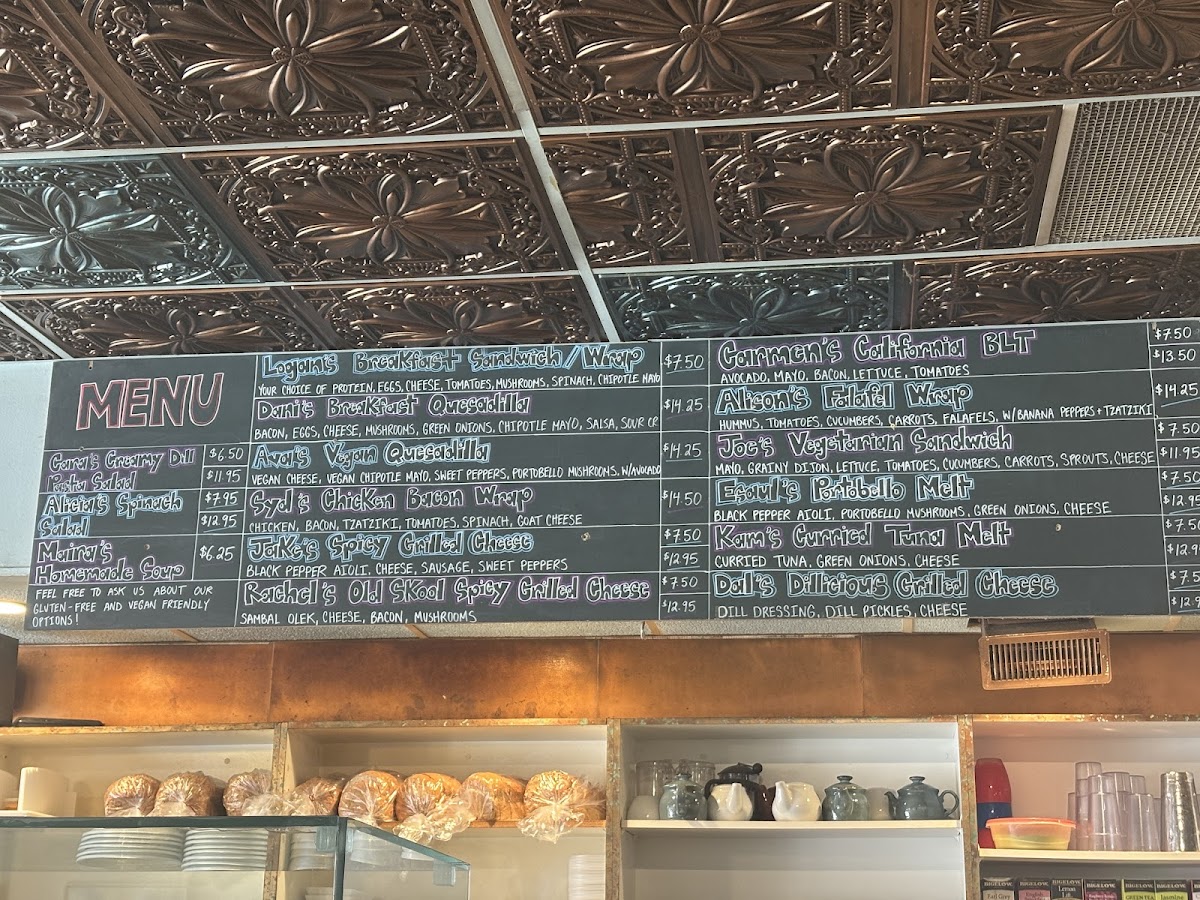 MENU
Cara's Creamy Dill $6.50
Pasta Salad $11.95
Alicia's Spinach $7.95
Salad $12.95
Maira's $6.25
Homemade Soup
FEEL FREE TO ASK US ABOUT OUR
GLUTEN-FREE AND VEGAN FRIENDLY
OPTIONS!
Logan's Breakfast Sandwich/Wrap $7.50
YOUR CHOICE OF PROTEIN, EGGS, CHEESE, TOMATOES, MUSHROOMS, SPINACH, CHIPOTLE MAYO
Dani's Breakfast Quesadilla $14.25
BACON, EGGS, CHEESE, MUSHROOMS, GREEN ONIONS, CHIPOTLE MAYO, SALSA, SOUR CR
Ava's Vegan Quesadilla $14.25
VEGAN CHEESE, VEGAN CHIPOTLE MAYO, SWEET PEPPERS, PORTOBELLO MUSHROOMS, W/AVOCADO
Syd's Chicken Bacon Wrap $14.50
CHICKEN, BACON, TZATZIKI, TOMATOES, SPINACH, GOAT CHEESE
Jake's Spicy Grilled Cheese $7.50
BLACK PEPPER AIOLI, CHEESE, SAUSAGE, SWEET PEPPERS $12.95
Rachel's Old SKool Spicy Grilled Cheese $7.50
SAMBAL OLEK, CHEESE, BACON, MUSHROOMS $12.95
Carmen's California BLT $7.50
AVOCADO, MAYO, BACON, LETTUCE, TOMATOES $13.50
Alison's Falafel Wrap $14.25
HUMMUS, TOMATOES, CUCUMBERS, CARROTS, FALAFELS, W/BANANA PEPPERS + TZATZIKI
Joe's Vegetarian Sandwich $7.50
MAYO, GRAINY DIJON, LETTUCE, TOMATOES, CUCUMBERS, CARROTS, SPROUTS, CHEESE $11.95
Esaul's Portobello Melt $7.50
BLACK PEPPER AIOLI, PORTOBELLO MUSHROOMS, GREEN ONIONS, CHEESE $12.9
Kam's Curried Tuna Melt $7.5
CURRIED TUNA, GREEN ONIONS, CHEESE $12.9
Dal's Dillicious Grilled Cheese $7.5
DILL DRESSING, DILL PICKLES, CHEESE $12.9
BIGELOW BIGELOW BIGELOW BIGELOW BIGELOW BIGELOW
Earl Grey Lemon GREEN TEA Jasmine